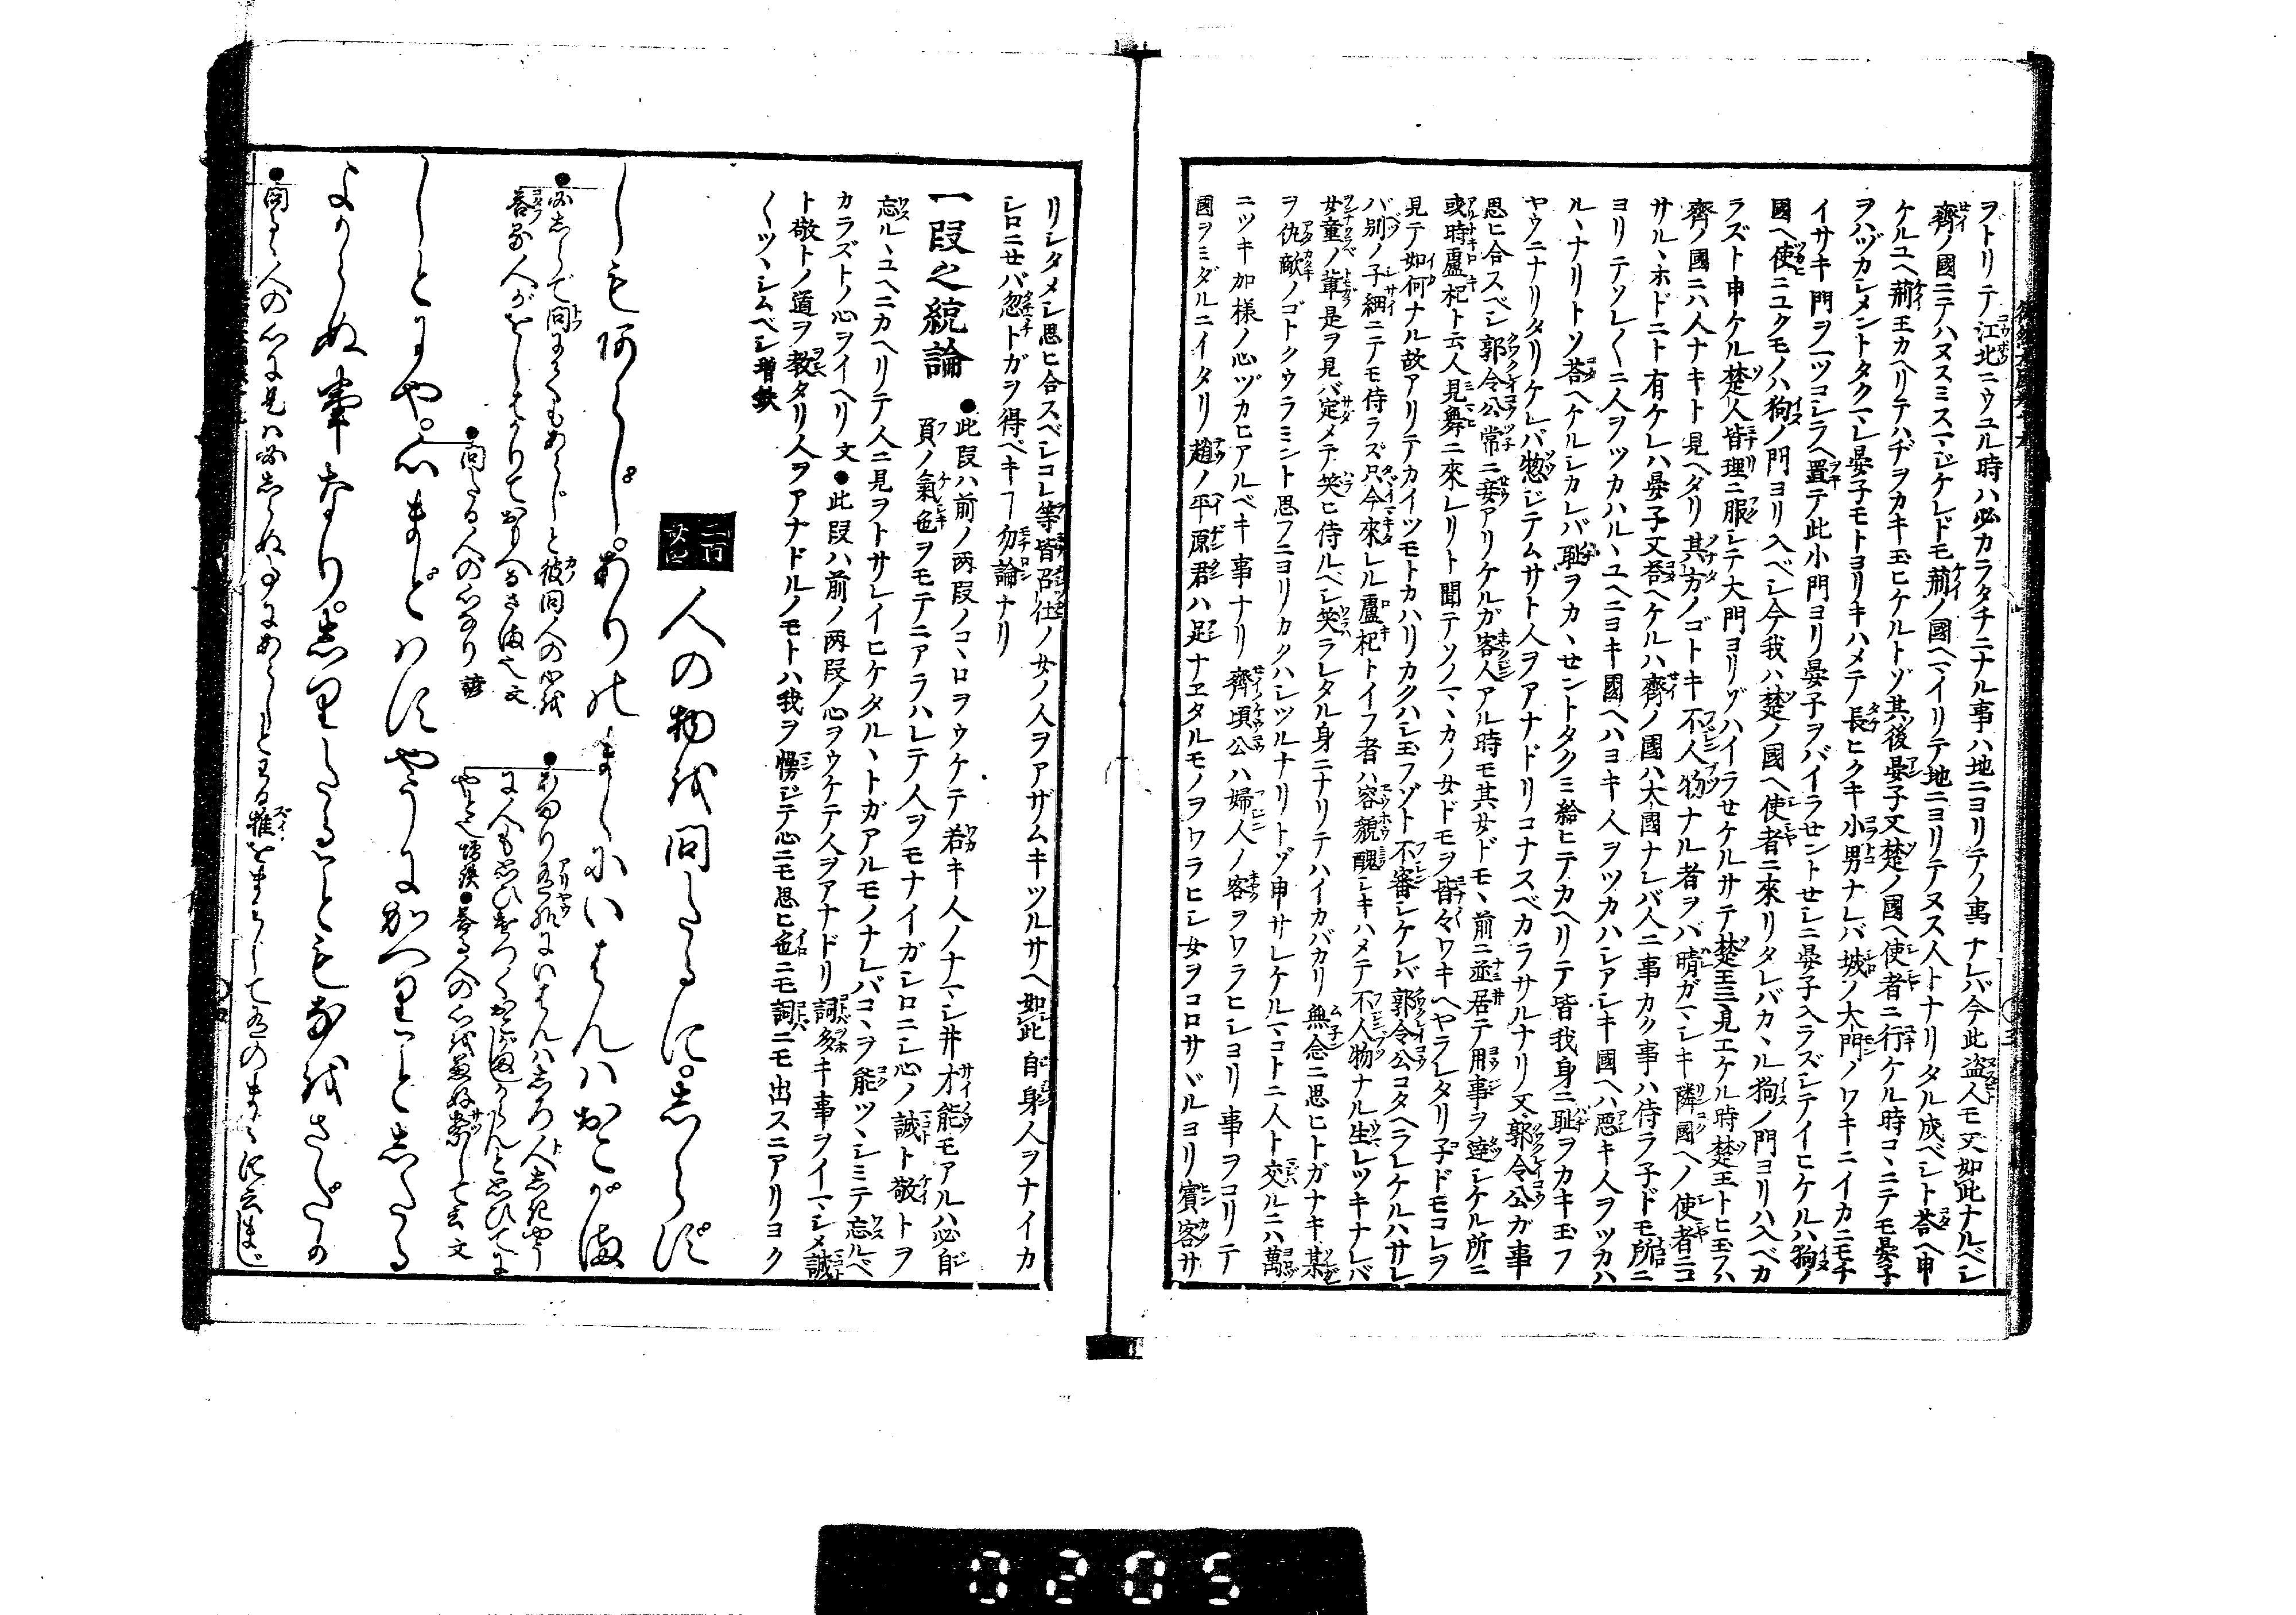 ヲトリテ江北ニウユル時ハ必カラタチニナル事ハ地ニヨリテノ寓ナレバ今此盗人モ又如此ナルベシ
齊ノ國ニテハヌスミスマジケレドモ荊ノ國ヘイリテ地ニヨリテヌス人トナリタル成ベシト荅ヘ申
ケルユヘ荊王カヘリテハヂヲカキ玉ヒケルトゾ其後晏子又楚ノ國ヘ使者ニ行ケル時コヽニテモ晏子
ヲハヅカシメントタクマレ晏子モトヨリキハメテ長ヒクキ小男ナレバ城ノ大門ノワキニイカニモチ
イサキ門ヲ一ツコシラヘ置テ此小門ヨリ晏子ヲバイラせントせシニ晏子入ラズシテイヒケルハ狗ノ
國ヘ使ニユクモノハ狗ノ門ヨリ入ベシ今我ハ楚ノ國ヘ使者ニ來リタレバカヽル狗ノ門ヨリハ入ベカ
ラズト申ケル楚人皆理ニ服シテ大門ヨリゾハイラせケルサテ楚王ニ見エケル時楚王トヒ玉フハ
齊ノ國ニハ人ナキト見ヘタリ其方ノゴトキ不人物ナル者ヲバ晴ガマシキ隣國ヘノ使者ニコ
サルヽホドニト有ケレハ晏子又荅ヘケルハ齊ノ國ハ大國ナレバ人ニ事カク事ハ侍ラ子ドモ所ニ
ヨリテソレ〱ニ人ヲツカハルヽユヘニヨキ國ヘハヨキ人ヲツカハシアシキ國ヘハ悪キ人ヲツカハ
ルヽナリトソ荅ヘケルシカレバ恥ヲカヽせントタクミ給ヒテカヘリテ皆我身ニ恥ヲカキ玉フ
ヤウニナリタリケレバ惣ジテムサト人ヲアナドリコナスベカラサルナリ又郭令公ガ事
思ヒ合スベシ郭令公常ニ妾アリケルガ客人アル時モ其女ドモヽ前ニ並居テ用事ヲ達シケル所ニ
或時盧杞ト云人見舞ニ來レリト聞テソノマヽカノ女ドモヲ皆々ワキヘヤラレタリ子ドモコレヲ
見テ如何ナル故アリテカイツモトカハリカクハシ玉フゾト不審シケレバ郭令公コタヘラレケルハサレ
バ別ノ子細ニテモ侍ラズ只今來レル盧杞トイフ者ハ容貌醜シキハメテ不人物ナル生レツキナレバ
女童ノ輩是ヲ見バ定メテ笑ヒ侍ルベシ笑ラレタル身ニナリテハイカバカリ無念ニ思ヒトガナキ某
ヲ仇敵ノゴトクウラミント思フニヨリカクハシツルナリトゾ申サレケルマコトニ人ト交ルニハ萬
ニツキ加様ノ心ヅカヒアルベキ事ナリ齊頃公ハ婦人ノ客ヲワラヒシヨリ事ヲコリテ
國ヲミダルニイタリ趙ノ平原君ハ足ナヱタルモノヲワラヒシ女ヲコロサヾルヨリ賓客サ
リシタメシ思ヒ合スベシコレ等皆召仕ノ女ノ人ヲアザムキツルサヘ如此自身人ヲナイカ
シロニせバ忽トガヲ得ベキヿ勿論ナリ
一段之統論
●此段ハ前ノ两段ノコヽロヲウケテ若キ人ノナマシ井才能モアルハ必自
負ノ氣色ヲモテニアラハレテ人ヲモナイガシロニシ心ノ誠ト敬トヲ
忘ルヽユヘニカヘリテ人ニ見ヲトサレイヒケタルヽトガアルモノナレバコヽヲ能ツヽシミテ忘ルベ
カラズトノ心ヲイヘリ文●此段ハ前ノ两段ノ心ヲウケテ人ヲアナドリ詞多キ事ヲイマシメ誠
ト敬トノ道ヲ教タリ人ヲアナドルノモトハ我ヲ慢ジテ心ニモ思ヒ色ニモ詞ニモ出スニアリヨク
〱ツヽシムベシ増鉄
人の物を問たるに。志らず
しも阿らじ。ありのまゝにいはんハおこがま
●必志らで問にてもあらじと彼問人の心を
荅る人がをしはかりておもへるさま也文
●問たる人の心なり諺
しとにや。心まどハすやうにかへりこと志たる
よからぬ事なり。志里たることもなをさだかの
●問たる人の心に見ハ必志らぬ事にあらしとをる推をまはして有のまゝに云まじ